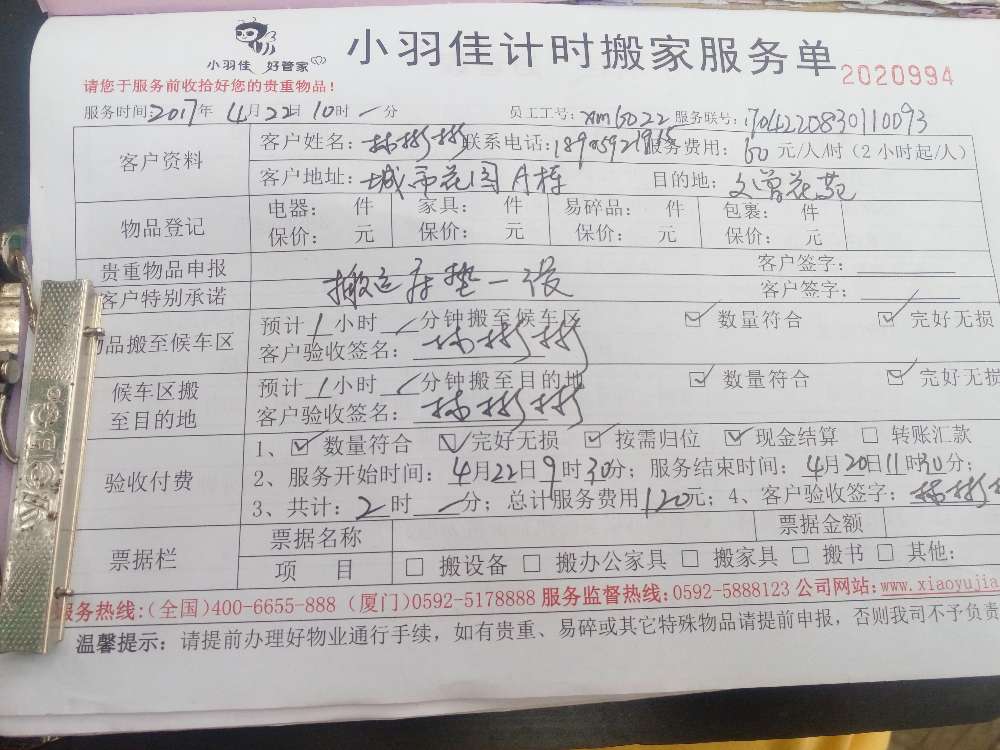 小羽佳 好管家
小羽佳计时搬家服务单
2020994
请您于服务前收拾好您的贵重物品！
服务时间:2017年 4月22日 10时一分 员工工号: xm6022 服务联号:1704220830110093
客户资料
客户姓名：林彬彬 联系电话: 服务费用：60元/人/时（2小时起/人）
客户地址：城市花园A栋 目的地：文曾花苑
物品登记
电器： 件 家具： 件 易碎品： 件 包裹： 件
保价： 元 保价： 元 保价： 元 保价： 元
贵重物品申报 客户签字：
客户特别承诺 搬运床垫一张 客户签字：
物品搬至候车区
预计1小时一分钟搬至候车区 ☑数量符合 ☑完好无损
客户验收签名：林彬彬
候车区搬至目的地
预计1小时一分钟搬至目的地 ☑数量符合 ☑完好无损
客户验收签名：林彬彬
验收付费
1、☑数量符合 ☑完好无损 ☑按需归位 ☑现金结算 □转账汇款
2、服务开始时间：4月22日9时30分；服务结束时间：4月20日11时30分；
3、共计：2时一分；总计服务费用120元；4、客户验收签字：林彬彬
票据栏
票据名称 票据金额
项 目 □搬设备 □搬办公家具 □搬家具 □搬书 □其他：
服务热线：(全国)400-6655-888 (厦门)0592-5178888 服务监督热线：0592-5888123 公司网站:www.xiaoyujia
温馨提示：请提前办理好物业通行手续，如有贵重、易碎或其它特殊物品请提前申报，否则我司不予负责